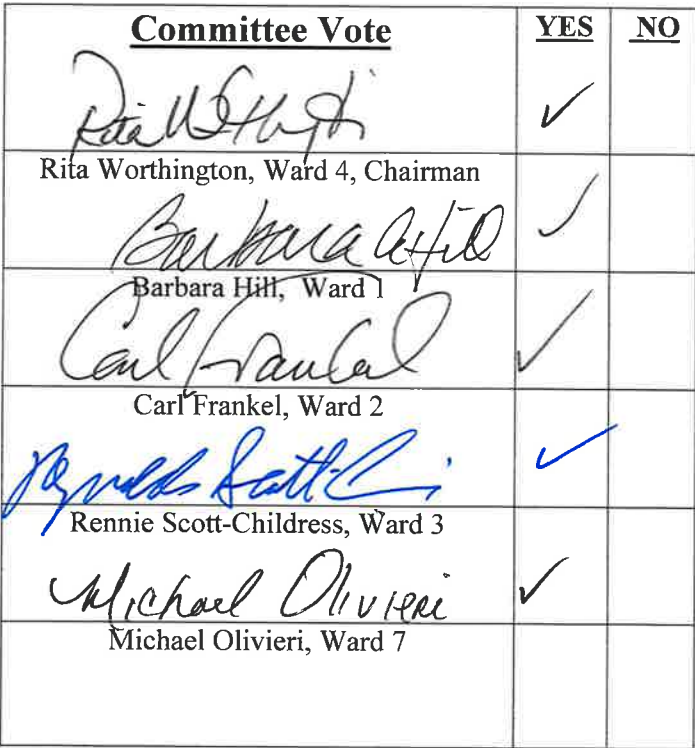 Committee Vote YES NO
Rita Worthington ✓
Rita Worthington, Ward 4, Chairman
Barbara A Hill ✓
Barbara Hill, Ward 1
Carl Frankel ✓
Carl Frankel, Ward 2
Reynolds Scott-Chi ✓
Rennie Scott-Childress, Ward 3
Michael Olivieri ✓
Michael Olivieri, Ward 7